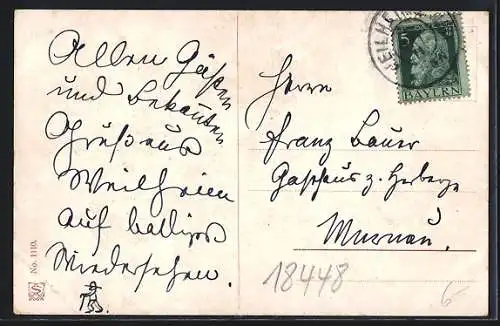 Allen Gästen
und Bekannten
Gruß aus
Weilheim
auf baldiges
Wiedersehen.
No. 1110.
WEILHEIM
5
BAYERN
Herrn
Franz Bauer
Gasthaus z. Herberge
Murnau.
18448
6-